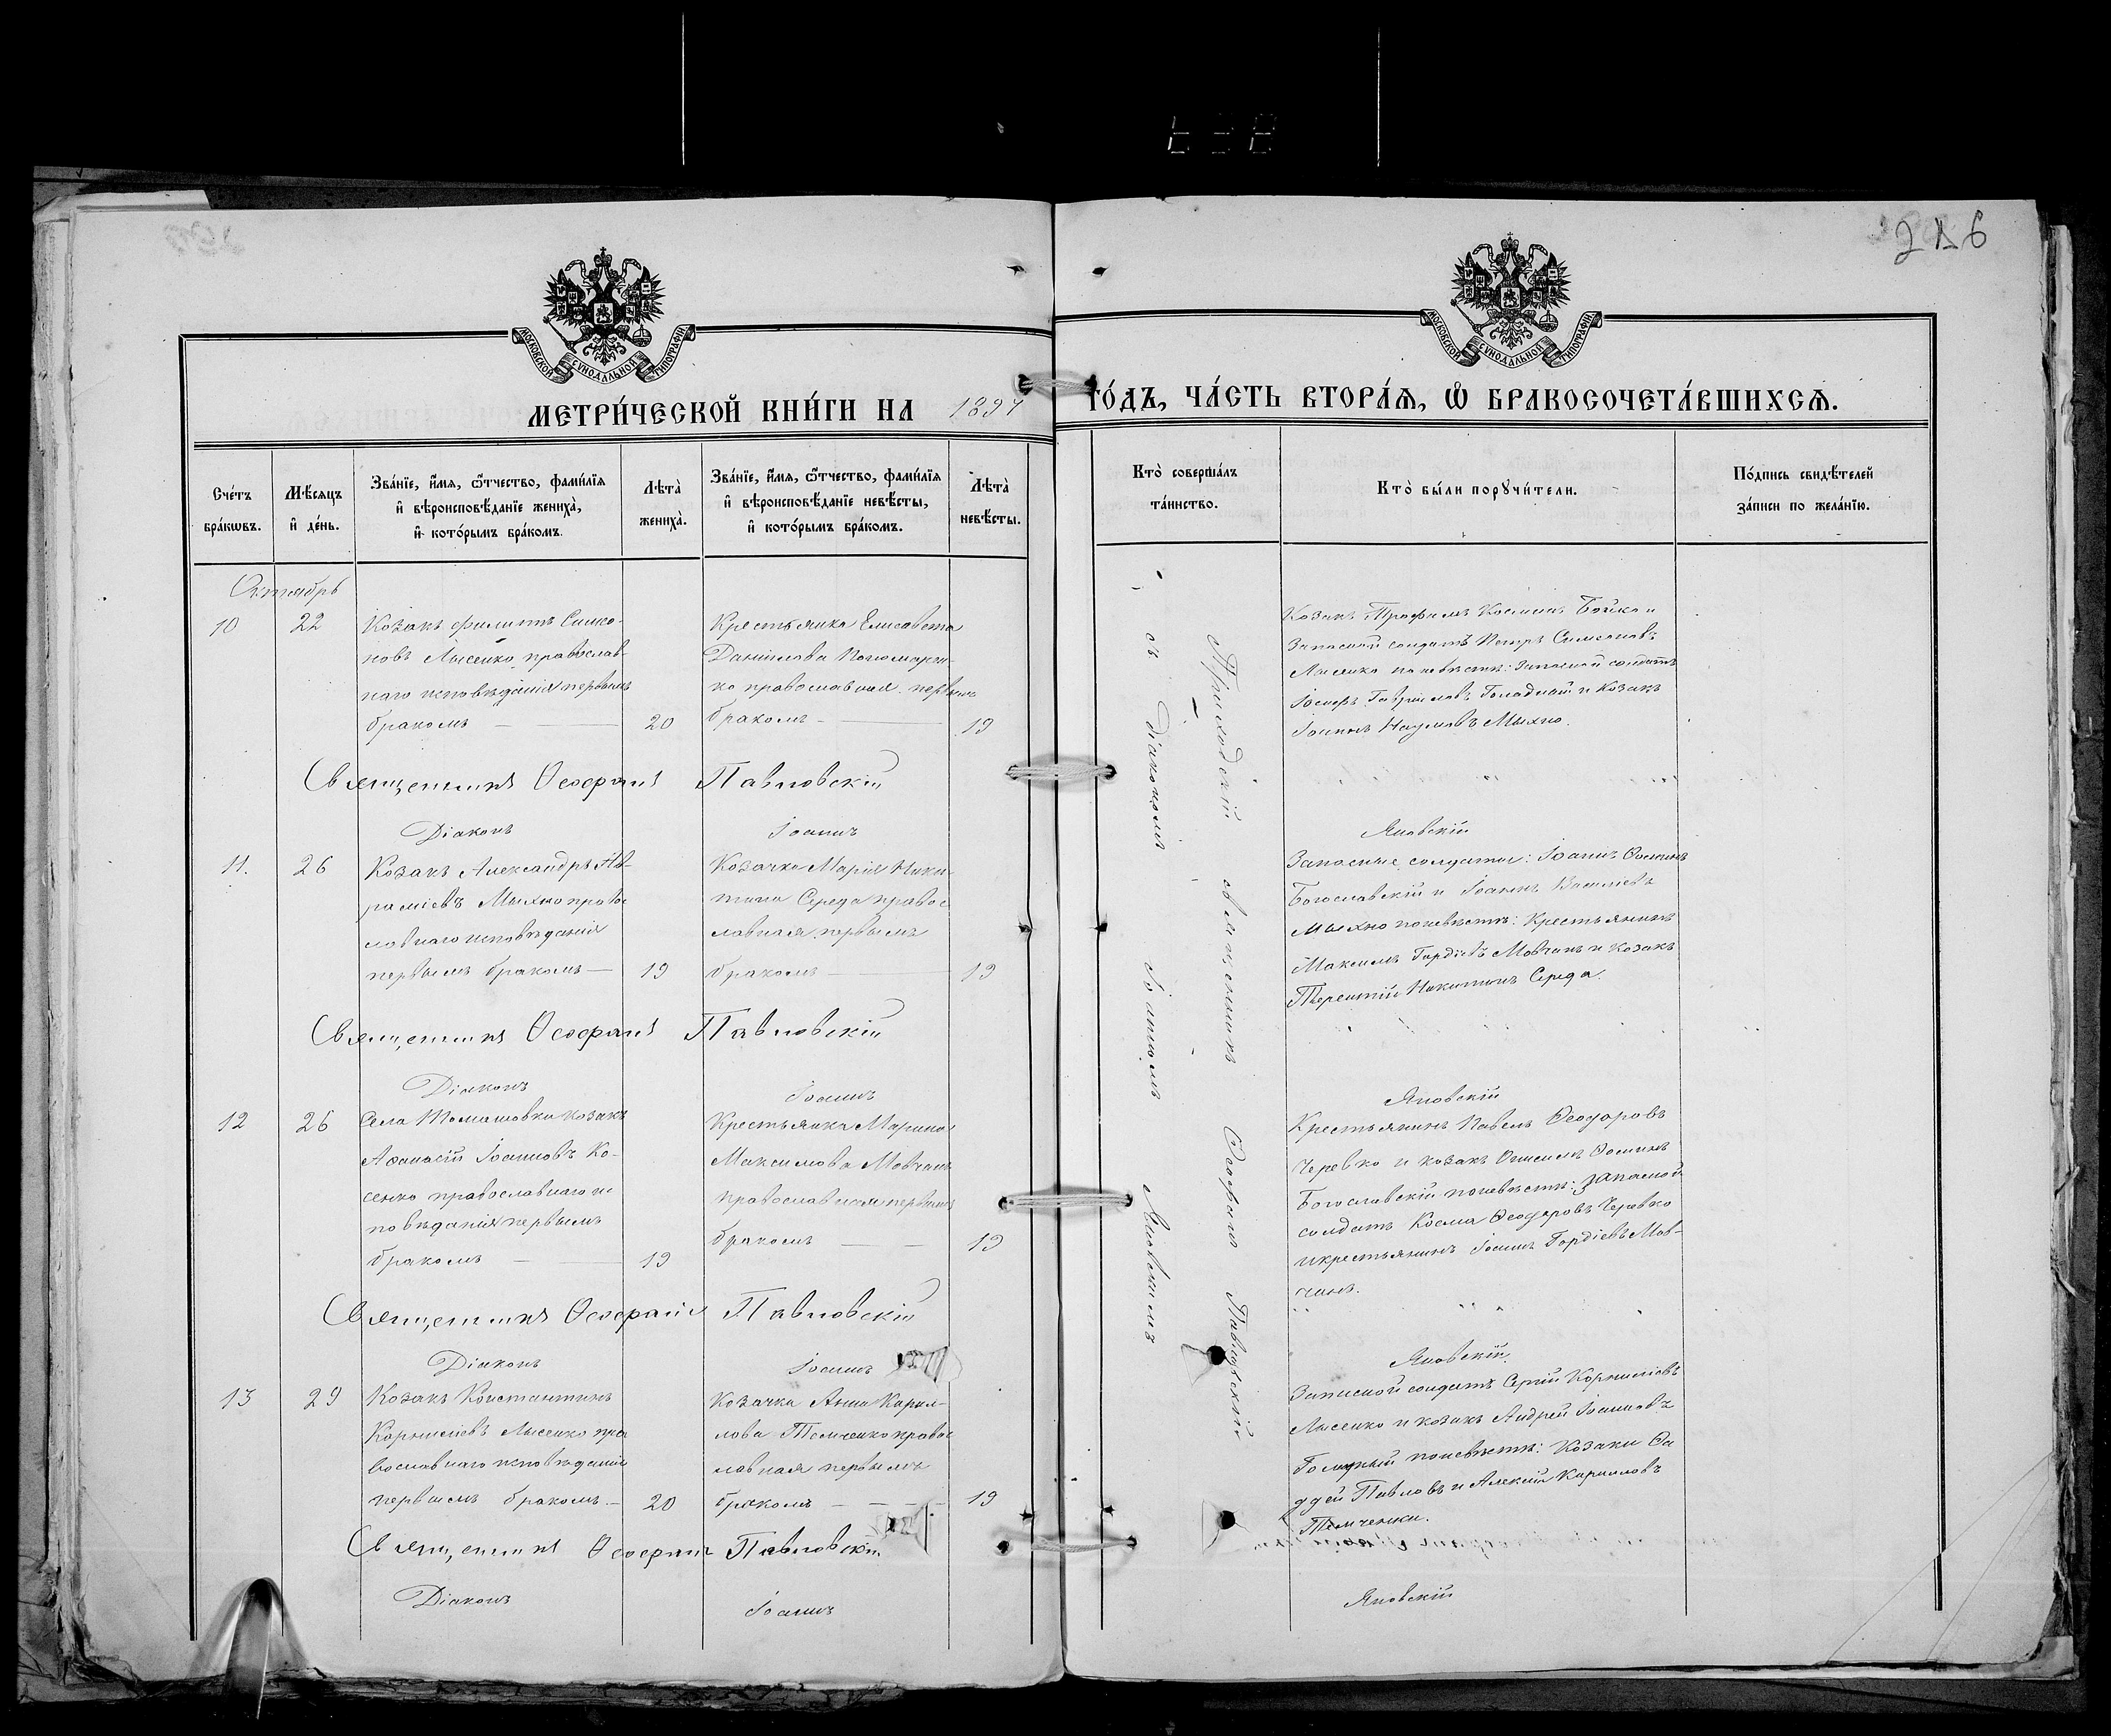 216
МОСКОВСКОЙ СѴНОДАЛЬНОЙ ТИПОГРАФІИ
МОСКОВСКОЙ СѴНОДАЛЬНОЙ ТИПОГРАФІИ
МЕТРИ́ЧЕСКОЙ КНИ́ГИ НА 1897 ГО́ДЪ, ЧА́СТЬ ВТОРА́Я, Ѡ БРАКОСОЧЕТА́ВШИХСЯ.
Сче́тъ бра́кѡвъ.
Мѣ́сяцъ и де́нь.
Зва́нїе, и́мя, ѻ́тчество, фами́лїя
и вѣроисповѣ́данїе жениха̀,
и кото́рымъ бра́комъ.
Лѣта̀ жениха̀.
Зва́нїе, и́мя, ѻ́тчество, фами́лїя
и вѣроисповѣ́данїе невѣ́сты,
и кото́рымъ бра́комъ.
Лѣта̀ невѣ́сты.
Кто̀ соверша́лъ
та́инство.
Кто̀ бы́ли порꙋчи́тели.
По́дпись свидѣ́телей
за́писи по жела́нїю.
Октябрь
10
22
Козакъ Филиппъ Симео-
новъ Лысенко, православ-
наго исповѣданія первымъ
бракомъ
20
Крестьянка Елисавета
Даніилова Пономарен-
ко православная первымъ
бракомъ
19
Козакъ Трофимъ Косминъ Бойко и
Запасной солдатъ Петръ Симеоновъ
Лысенко по невѣстѣ: Запасной солдатъ
Іосифъ Гавріиловъ Голадный и Козакъ
Іоаннъ Наумовъ Михно.
Священникъ Ѳеофанъ Павловскій
Діаконъ Іоаннъ Яновскій
11.
26
Козакъ Александръ Ав-
раміевъ Михно право
славнаго исповѣданія
первымъ бракомъ
19
Козачка Марія Ники-
тина Середа правос
лавная первымъ
бракомъ
19
Запасные солдаты: Іоаннъ Ѳоминъ
Богославскій и Іоаннъ Василіевъ
Михно по невѣстѣ: Крестьянинъ
Максимъ Гордіевъ Мовчанъ и Козакъ
Терентій Никитинъ Середа.
Священникъ Ѳеофанъ Павловскій
Діаконъ Іоаннъ Яновскій
12
26
Села Томашовки козакъ
Аѳанасій Іоанновъ Ко-
сенко православнаго ис
повѣданія первымъ
бракомъ
19
Крестьянка Марина
Максимова Мовчанъ
православная первымъ
бракомъ
19
Крестьянинъ Павелъ Ѳеодоровъ
Черевко и козакъ Онисимъ Ѳоминъ
Богославскій по невѣстѣ: Запасной
солдатъ Косма Ѳеодоровъ Черевко
и крестьянинъ Іоаннъ Гордіевъ Мов-
чанъ.
Священникъ Ѳеофанъ Павловскій
Діаконъ Іоаннъ Яновскій
13
29
Козакъ Константинъ
Корниліевъ Лысенко пра
вославнаго исповѣданія
первымъ бракомъ
20
Козачка Анна Кирил-
лова Темченко правос
лавная первымъ
бракомъ
19
Запасной солдатъ Сергій Корниліевъ
Лысенко и козакъ Андрей Іоанновъ
по невѣстѣ: Козаки Ѳа
ддей Павловъ и Алексій Кирилловъ
Темченки.
Священникъ Ѳеофанъ Павловскій
Діаконъ Іоаннъ Яновскій
Приходскій священникъ Ѳеофанъ Павловскій
съ діакономъ Іоанномъ Яновскимъ